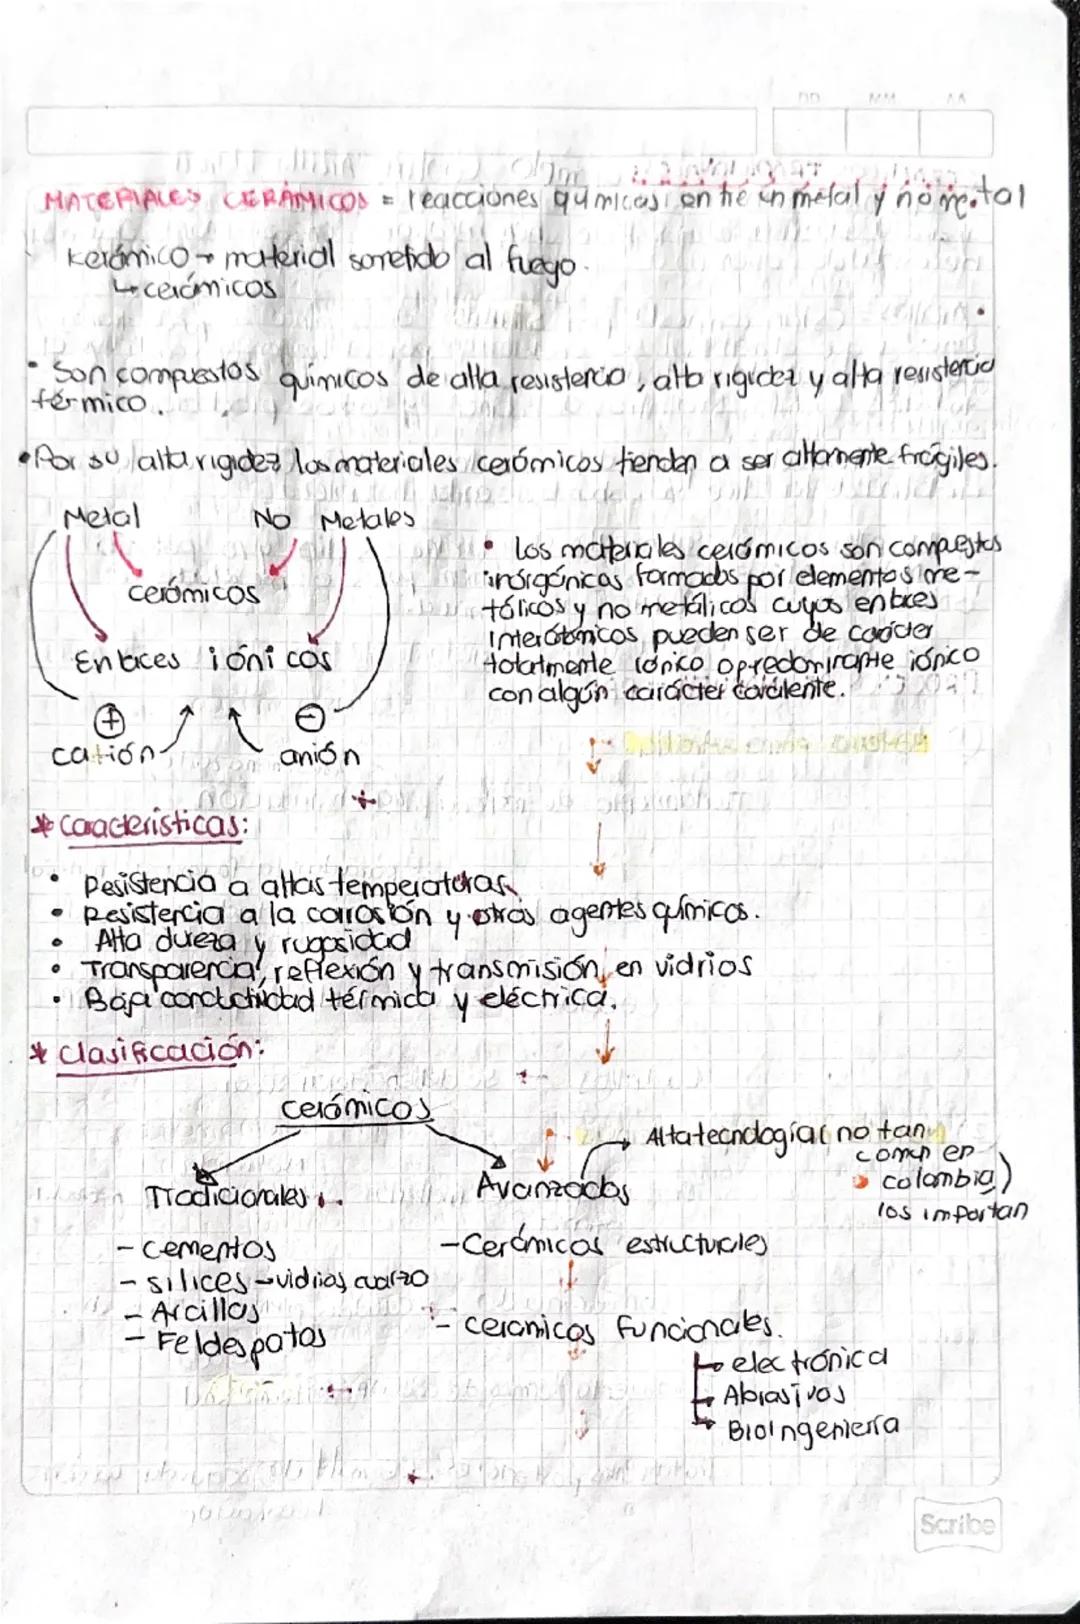 DD MM AA
MATERIALES CERÁMICOS = reacciones químicas entre un metal y no metal
Kerámico → material sometido al fuego.
↳ cerámicos
• Son compuestos químicos de alta resistencia, alta rigidez y alta resistencia
térmico.
• Por su alta rigidez los materiales cerámicos tienden a ser altamente frágiles.
Metal No Metales
cerámicos
Enlaces iónicos
+ −
catión anión
• Los materiales cerámicos son compuestos
inorgánicas formados por elementos me-
tálicos y no metálicos cuyos enlaces
Interátomicos pueden ser de carácter
totalmente iónico o predominante iónico
con algún carácter covalente.
* Características:
• Resistencia a altas temperaturas
• Resistencia a la corrosión y otros agentes químicos.
• Alta dureza y rugosidad
• Transparencia, reflexión y transmisión en vidrios
• Baja conductividad térmica y eléctrica.
* Clasificación:
cerámicos
Tradicionales
- cementos
- sílices → vidrios, cuarzo
- Arcillas
- Feldespatos
Avanzados
→ Alta tecnología (no tan
comun en
colombia)
los importan
- Cerámicos estructurales
- ceramicos funcionales.
→ electrónica
→ Abrasivos
→ BioIngeniería
Scribe